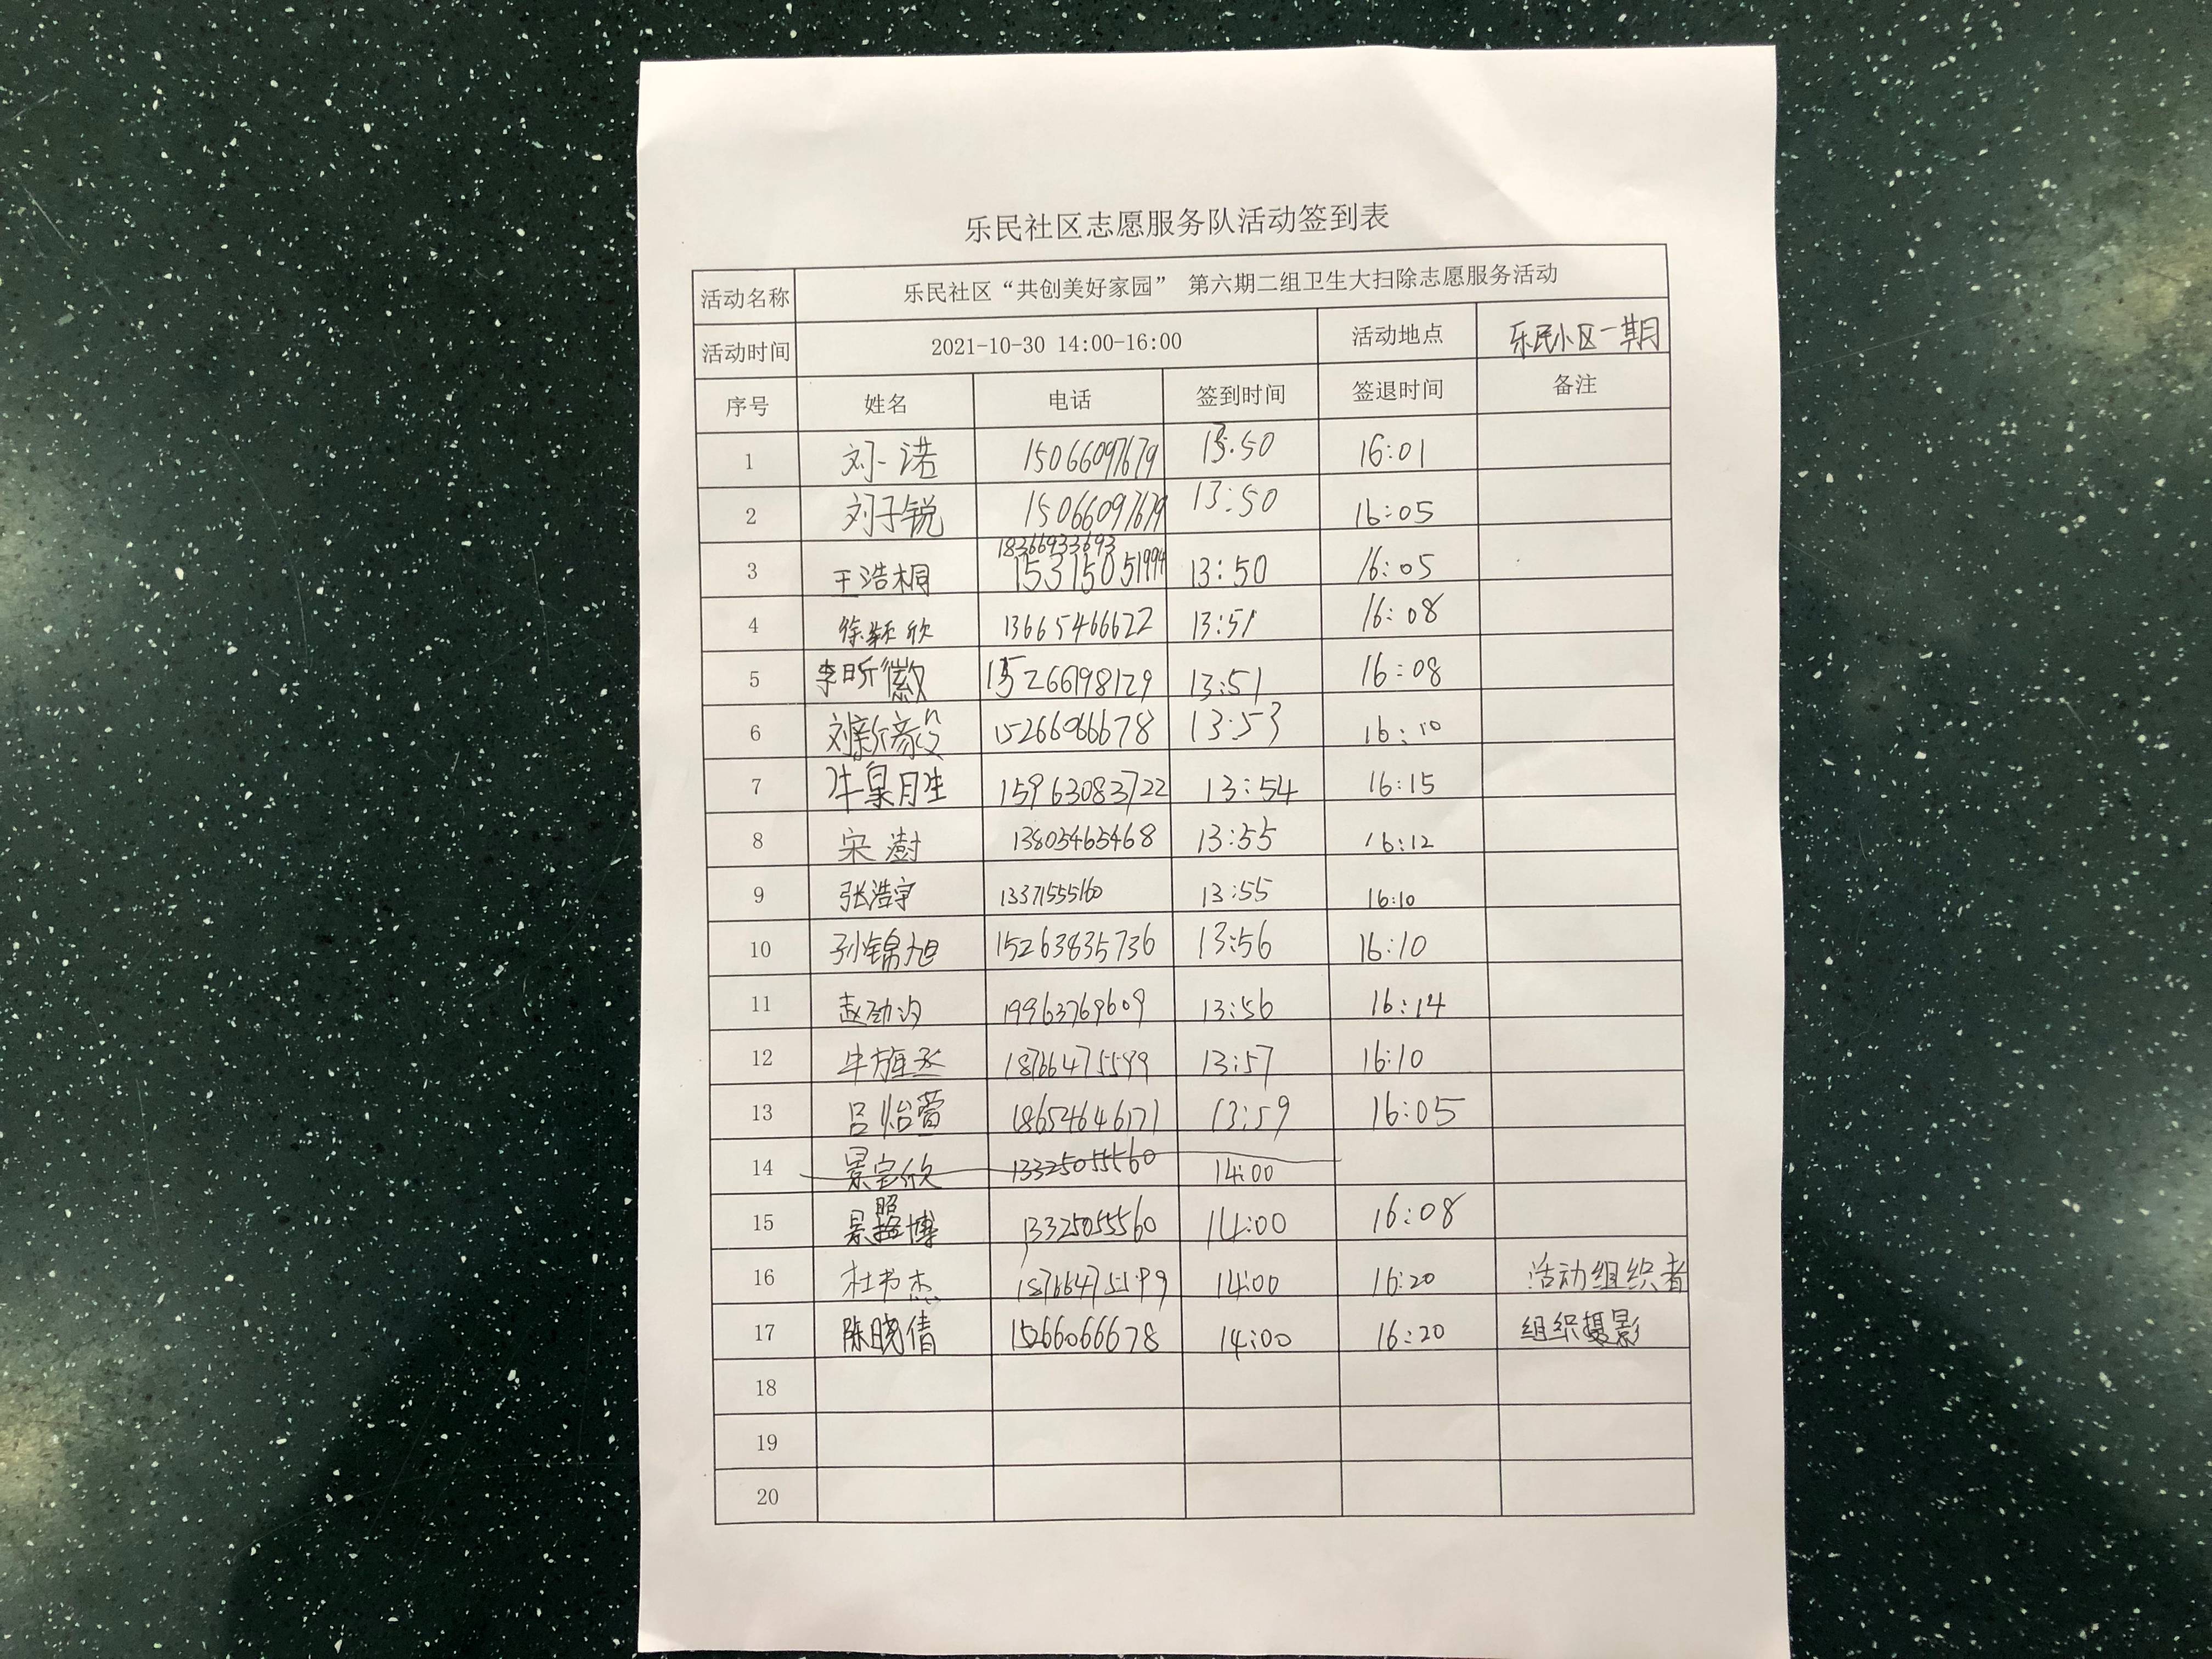 乐民社区志愿服务队活动签到表
活动名称 乐民社区“共创美好家园” 第六期二组卫生大扫除志愿服务活动
活动时间 2021-10-30 14:00-16:00 活动地点 乐民小区一期
序号 姓名 电话 签到时间 签退时间 备注
1 刘一诺 15066097679 13:50 16:01
2 刘子锐 15066097679 13:50 16:05
18366933693
3 王浩桐 15315051994 13:50 16:05
4 徐颖欣 13665466622 13:51 16:08
5 李昕徽 15266198129 13:51 16:08
6 刘新豪 15266066678 13:53 16:10
7 15963083722 13:54 16:15
8 宋澍 13805465468 13:55 16:12
9 张浩宇 13371555160 13:55 16:10
10 孙锦旭 15263835736 13:56 16:10
11 赵劲汐 19963769609 13:56 16:14
12 牛旌丞 18766475599 13:57 16:10
13 吕怡萱 18654646171 13:59 16:05
14 景宜欣 13325055560 14:00
15 景照博 13325055560 14:00 16:08
16 杜书杰 18766475599 14:00 16:20 活动组织者
17 陈晓倩 15266066678 14:00 16:20 组织摄影
18
19
20